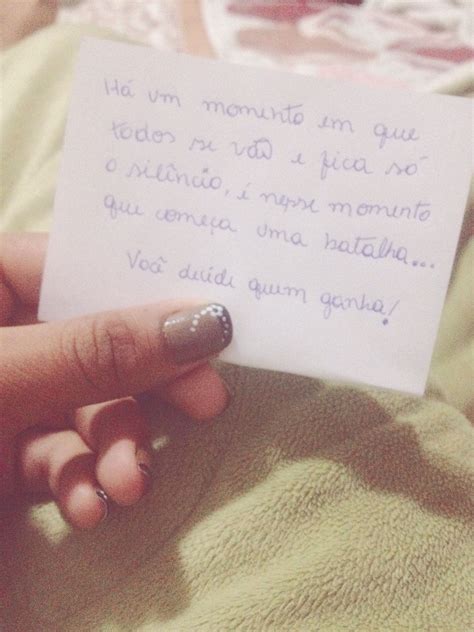 Há um momento em que
todos se vão e fica só
o silêncio, é nesse momento
que começa uma batalha...
Você decide quem ganha!